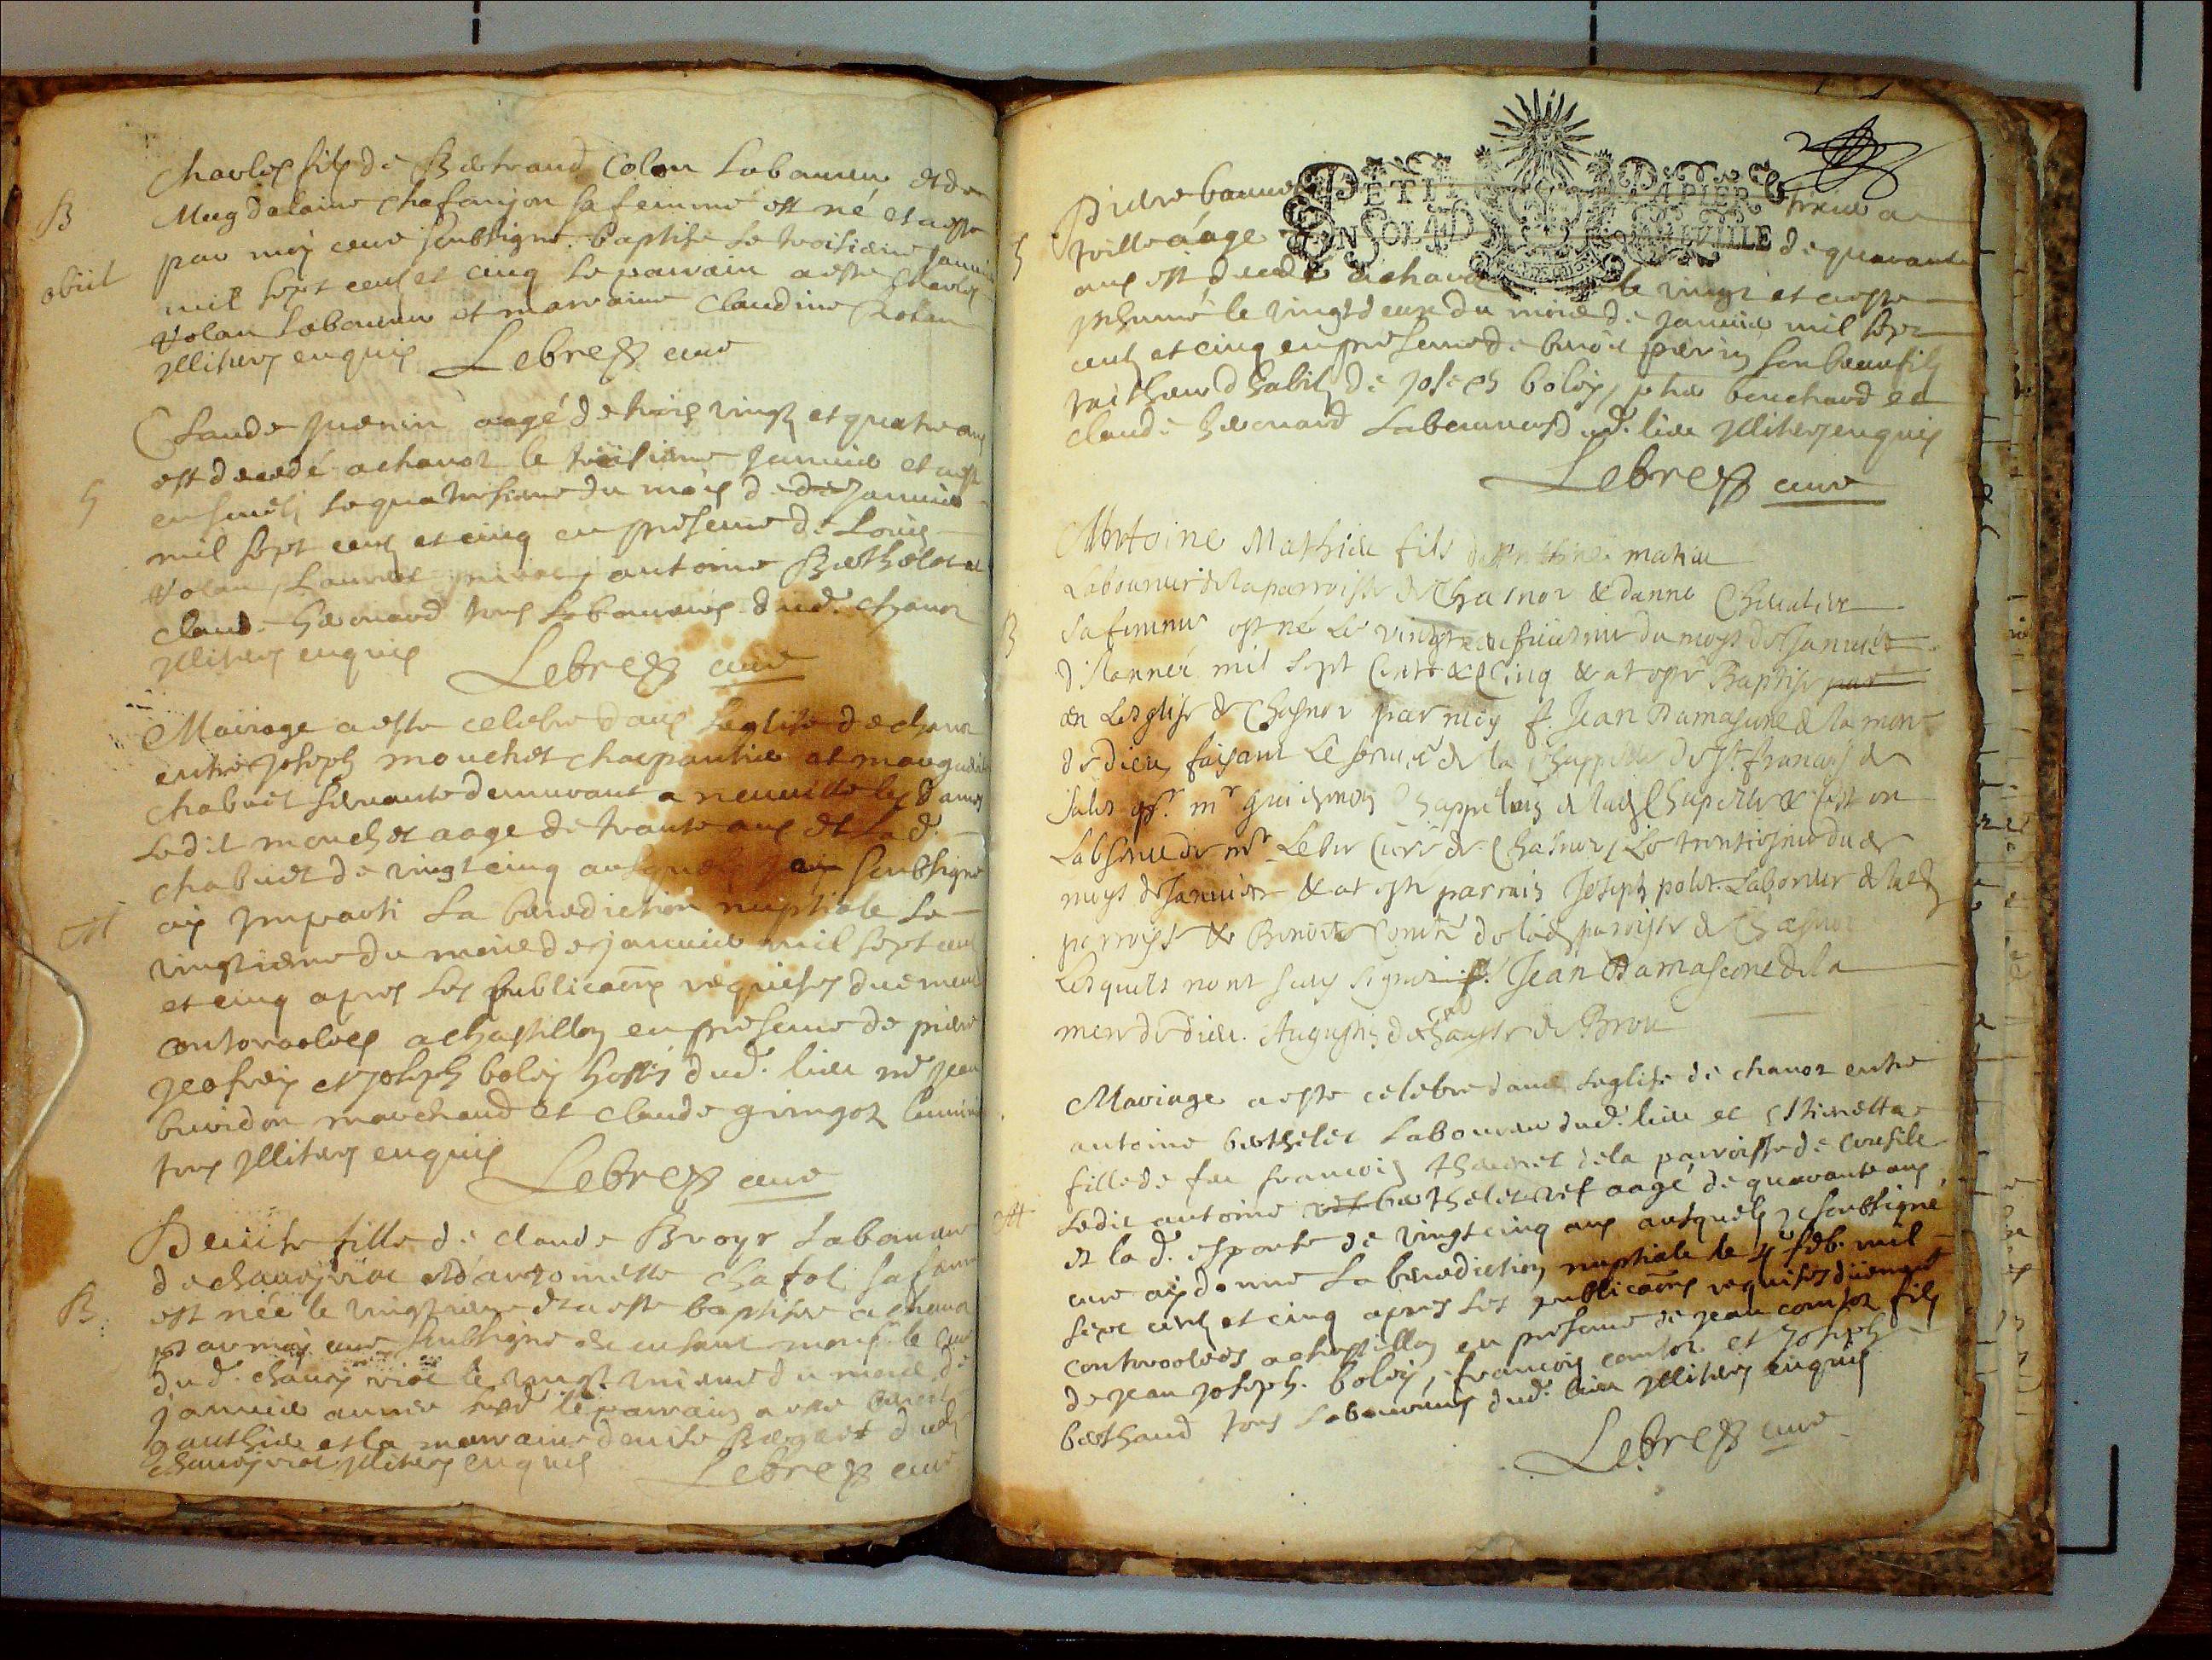 Charles fils de Bertrand Colon Laboureur et de
B
Magdelaine Chafanjon sa femme est né et a esté
par moy curé soubsigné baptisé le troisieme Janvier
obiit
mil sept cent et cinq le parrain a esté Charles
Volan Laboureur et marraine Claudine
Illiteres enquis Lebreff curé
Claude aagé de trois vingt et quatre ans
est decedé a chanoz le troisieme Janvier et a esté
S
enseveli le quatriesme du mois de de Janvier
mil sept cent et cinq en presence de Louis
Volan, Laurent antoine Berthelet et
Claude heronard tous Laboureurs dud. chanoz
Illiteres enquis Lebreff curé
Mariage a esté celebré dans leglise de chanoz
entre Joseph mouchet charpantier et marguerite
chabuet servante demeurant a neuville les dames
Ledit mouchet aagé de trante ans et lad.
chabuet de vingt cinq ausquels soubsigné
M
ay imparti La benediction nuptiale le
vingtieme du mois de janvier mil sept cent
et cinq apres les publicaons requises duement
controolees a chastillon en presence de pierre
Geofray et Joseph boley hostes dud. lieu me Jean
buidon marchand et claude gringoz
tous Illiteres enquis Lebreff curé
Denise fille de claude Broyr Laboureur
de chaveyriat et dantoinette chafol sa femme
B
est née le vingtieme et a esté baptisee a chanoz
par moy curé soubsigné en absence mons. le curé
dud. chaveyriat le vingt du mois de
janvier année susd. le parrain
gauthier et la marraine denise Bergeret dud.
chaveyriat Illiteres enquis Lebreff curé
PETIT PAPIER
EN SOLD LA VILLE
Pierre
aagé de quarante
S
ans est decedé a chanoz le vingt et a esté
Inhumé le vingt deux du mois de janvier mil sept
cent et cinq en presence de benoit perrin son beaufils
dhabits de Joseph boley, bouchard et
claude heronard Laboureurs dud. lieu Illiteres enquis
Lebreff curé
Anthoine Mathieu fils danthoine matieu
Laboureur de la parroisse de Chasnoz & danne
B
sa femme est né le vingt du moys de Janvier
de lannée mil sept Cents & Cinq & at esté Baptisé par
en Lesglise de Chasnoz par moy f. Jean Damascene de la mere
de dieu, faisant le service de la Chappelle de St. françois de
Sales Mr chappelain de lad. Chapelle & Cest en
Labsence de Mr. Lebre Curé de Chasnoz, Le trentiesme dud.
moys de Janvier & at esté parrain Joseph polet Laboureur de lad.
parroisse & Benoite de lad. parroisse de Chasnoz
Lesquels nont sceu signer f. Jean Damascene de la
mere de dieu. Augustin dechaussé de Brou
Mariage a esté celebré dans leglise de chanoz entre
antoine berthelet Laboureur dud. lieu et Thienette
fille de feu françois de la parroisse de
M
Ledit antoine vef berthelet vef aagé de quarante ans
et la d. espouse de vingt cinq ans ausquels je soubsigné
curé ay donné La benediction nuptiale le 4e feb. mil
sept cent et cinq apres les publicaons requises duement
controolees a chastillon en presence de jean comtoz fils
de jean Joseph boley, françois comtoz et Joseph
berthaud tous Laboureurs dud. lieu Illiteres enquis
Lebreff curé